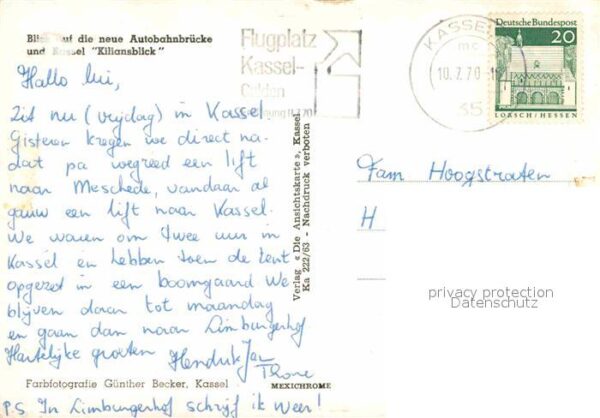 Blick auf die neue Autobahnbrücke
und Kassel "Kiliansblick"
Hallo lui,
Zit nu (vrijdag) in Kassel
Gisteren kregen we direct na-
dat pa wegreed een lift
naar Meschede, vandaar al
gauw een lift naar Kassel.
We waren om twee uur in
Kassel en hebben toen de tent
opgezet in een boomgaard We
blijven daar tot maandag
en gaan dan naar Limburgerhof.
Hartelijke groeten Hendrik Jan
Farbfotografie Günther Becker, Kassel
MEXICHROME
P.S. In Limburgerhof schrijf ik weer!
Verlag « Die Ansichtskarte », Kassel
Ka 222/63 - Nachdruck verboten
Flugplatz
Kassel-
Calden
KASSEL
10.7.70
35
Deutsche Bundespost
20
LORSCH/HESSEN
Fam Hoogstraten
H
privacy protection
Datenschutz